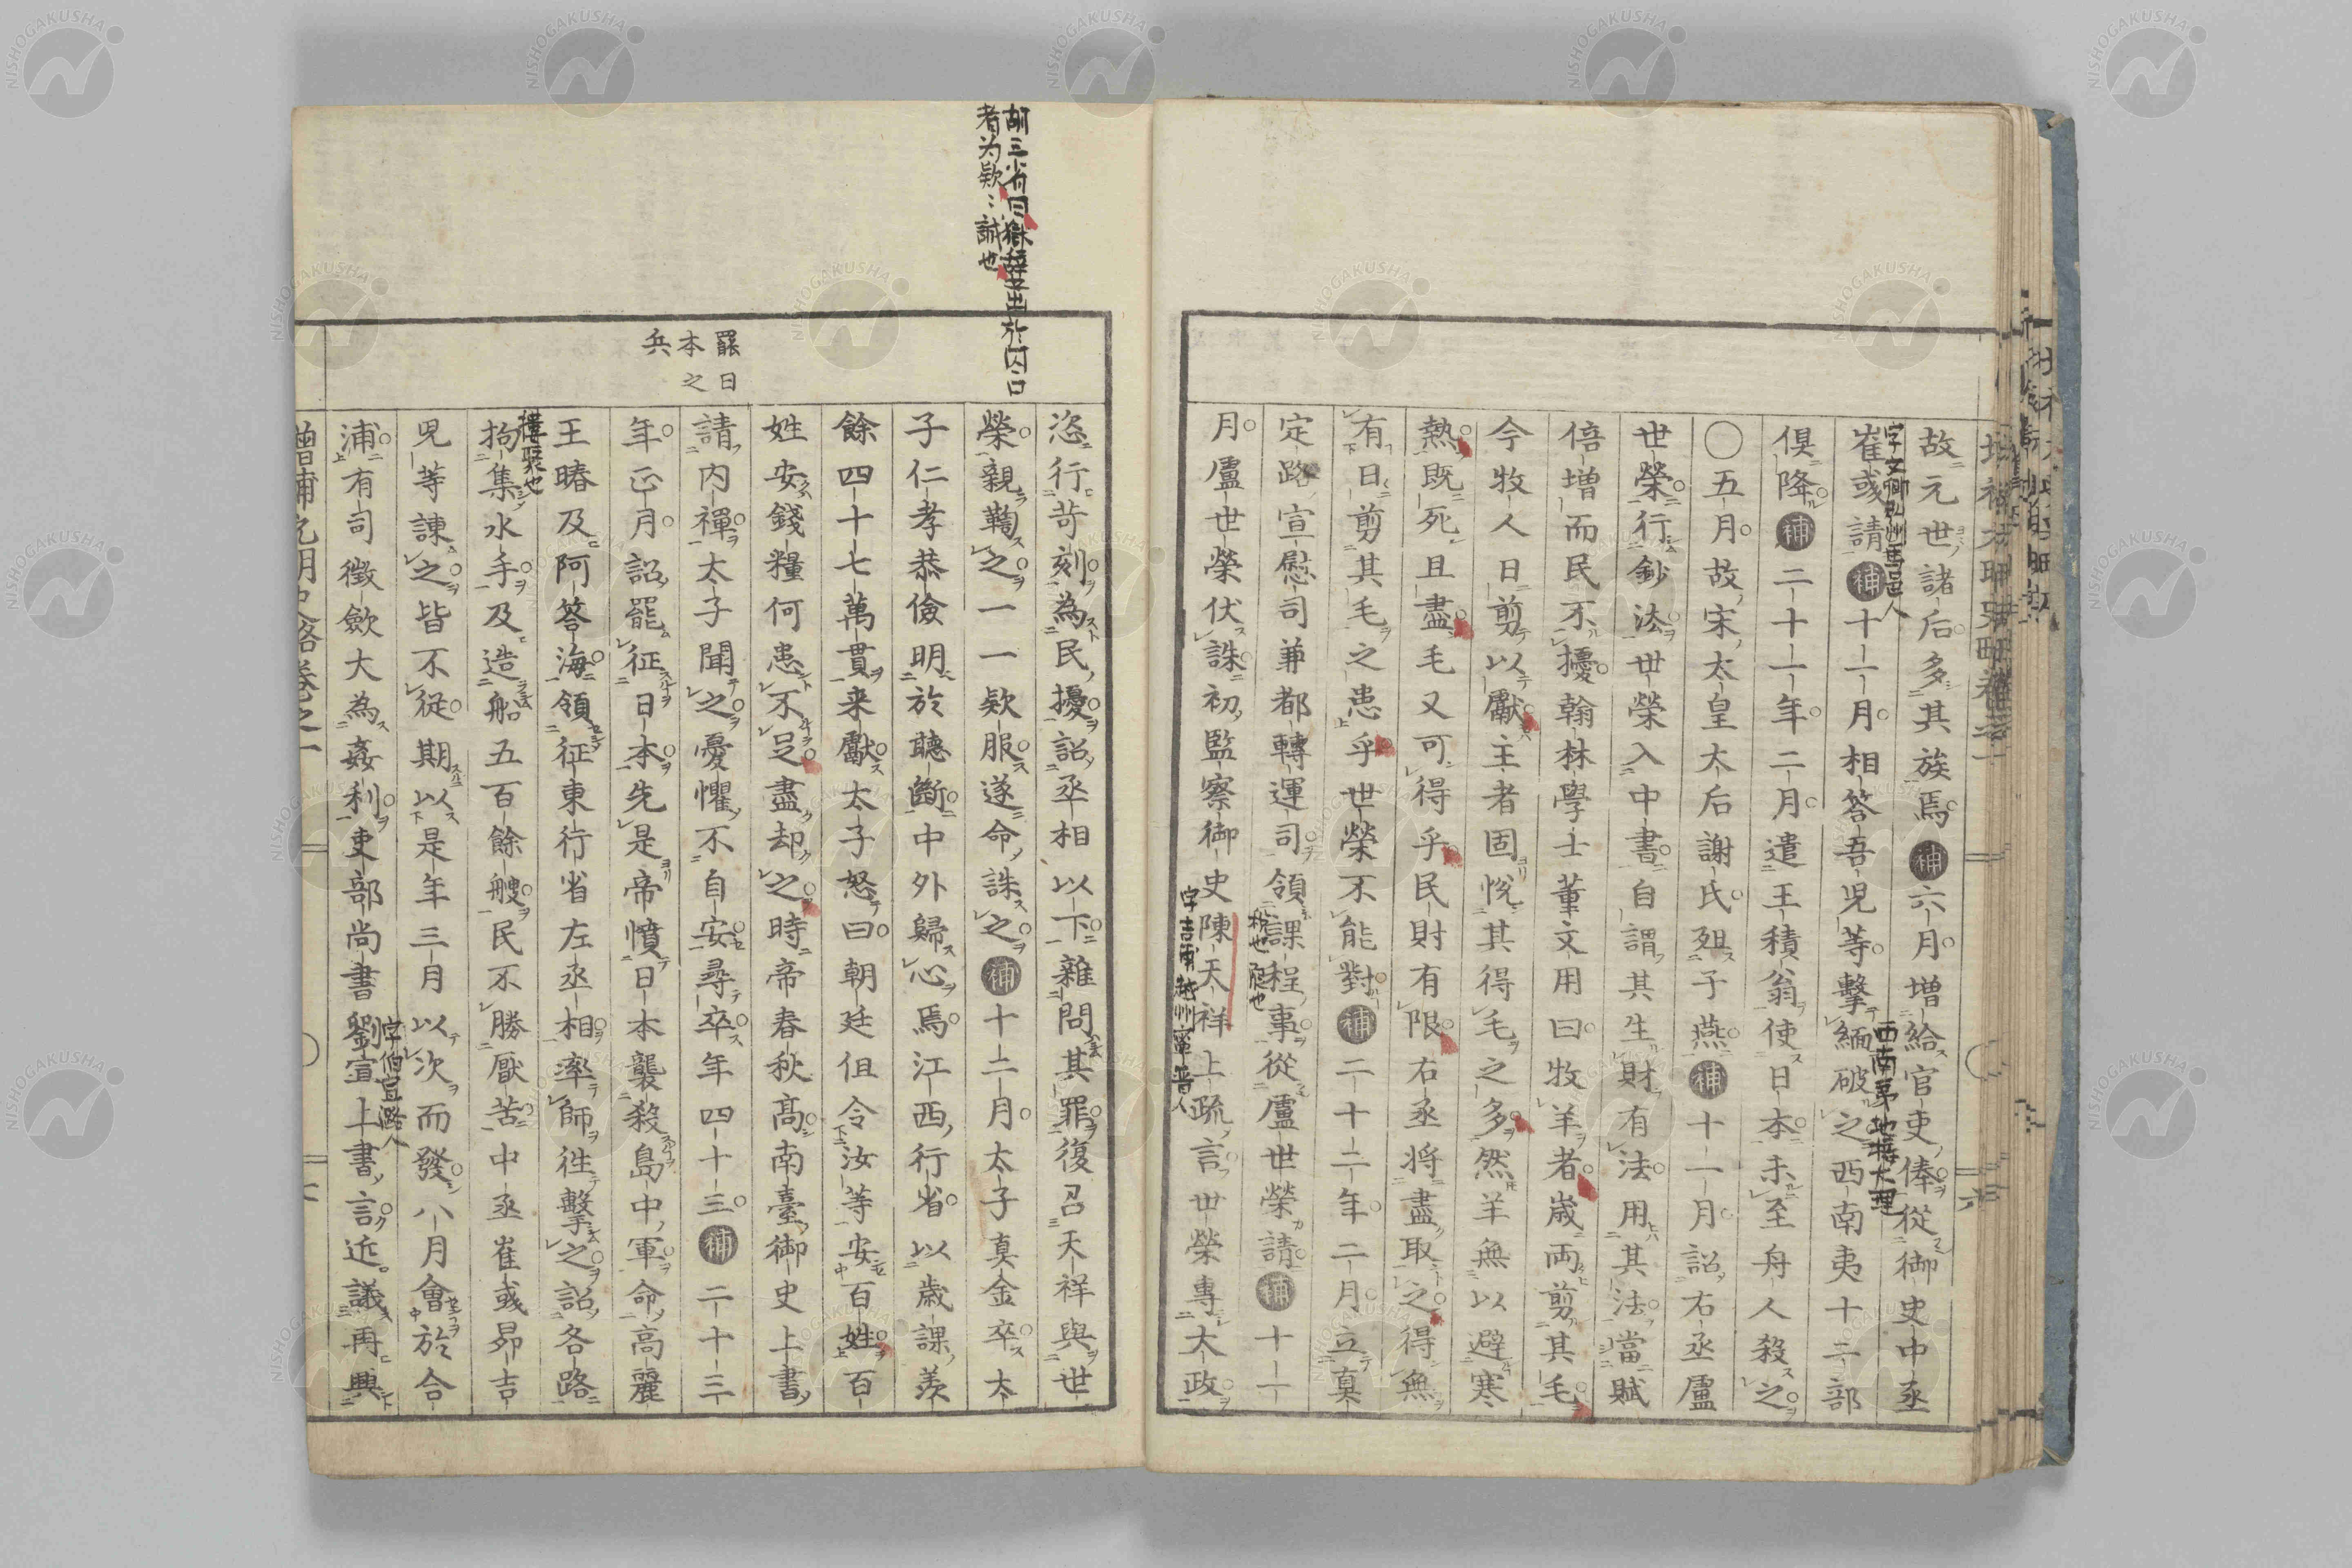 故元世諸后多其族焉補六月增給官吏俸從御史中丞
崔彧請補十一月相答吾兒等擊緬破之西南夷十二部
字文卿弘州馬邑人
西南夷地接大理
俱降補二十一年二月遣王積翁使日本未至舟人殺之
〇五月故宋太皇太后謝氏殂于燕補十一月詔右丞盧
世榮行鈔法世榮入中書自謂其生財有法用其法當賦
倍增而民不擾翰林學士董文用曰牧羊者歲兩剪其毛
今牧人日剪以獻主者固悅其得毛之多然羊無以避寒
熱既死且盡毛又可得乎民財有限右丞將盡取之得無
有日剪其毛之患乎世榮不能對補二十二年二月立真
定路宣慰司兼都轉運司領課程事從盧世榮請補十一
月盧世榮伏誅初監察御史陳天祥上疏言世榮專大政
字吉甫趙州寧晋人
胡三省曰獄辭出於囚口
者为欵〻誠也
恣行苛刻為民擾詔丞相以下雜問其罪復召天祥與世
榮親鞫之一一欵服遂命誅之補十二月太子真金卒太
子仁孝恭儉明於聽斷中外歸心焉江西行省以歲課羨
餘四十七萬貫来獻太子怒曰朝廷但令汝等安百姓百
姓安錢糧何患不足盡却之時帝春秋高南臺御史上書
請内禪太子聞之憂懼不自安尋卒年四十三補二十三
罷日
本之
兵
年正月詔罷征日本先是帝憤日本襲殺島中軍命高麗
王㬚及阿答海領征東行省左丞相率師徃擊之詔各路
拘集水手及造船五百餘艘民不勝厭苦中丞崔彧昴吉
兒等諫之皆不從期以是年三月以次而發八月會於合
浦有司徵斂大為姦利吏部尚書劉宣上書言近議再興
增補元明史略卷之一